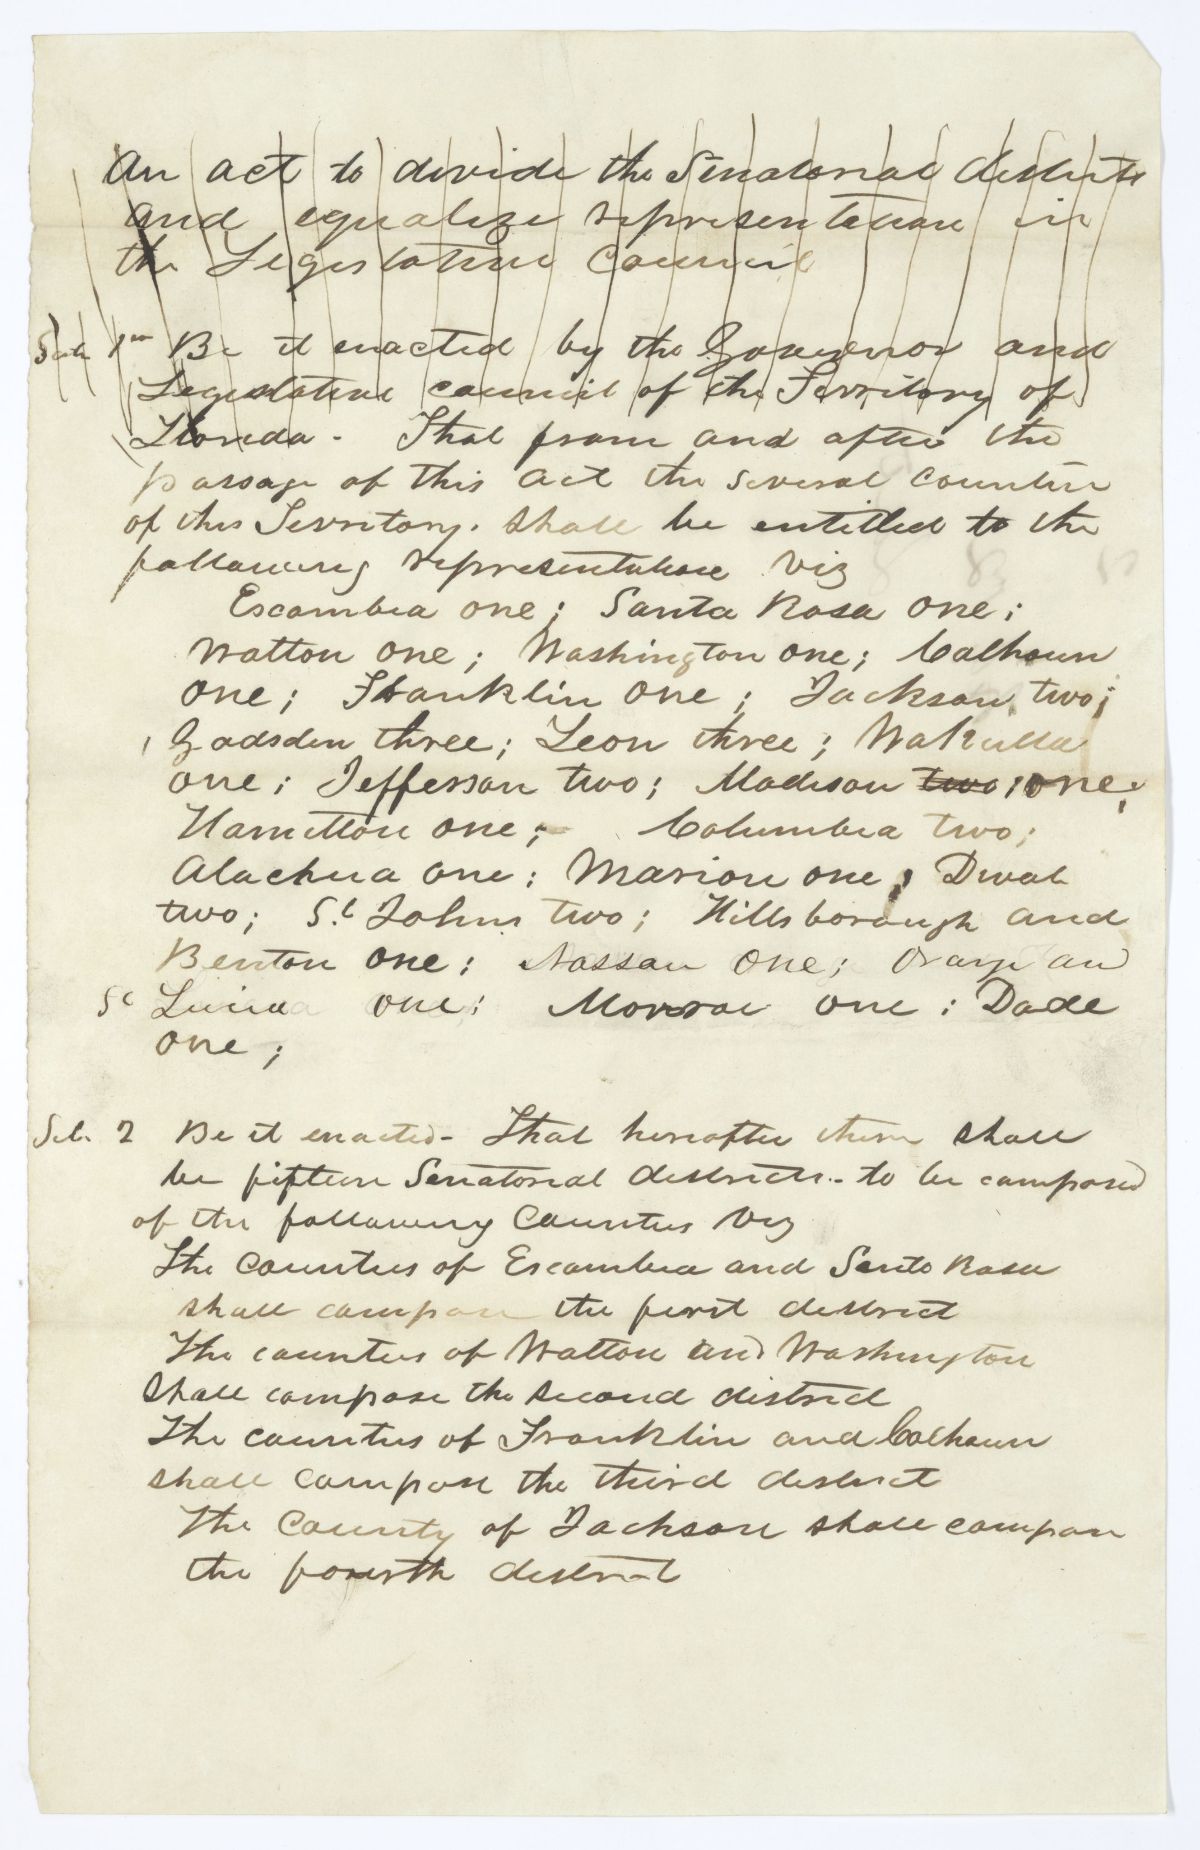 An act to divide the Senatorial districts
and equalize representation in
the Legislative Council
Sectn 1st Be it enacted by the Governor and
Legislative council of the Territory of
Florida - That from and after the
passage of this act the several counties
of this Territory. shall be entitled to the
following representation viz
Escambia one; Santa Rosa one;
Walton one; Washington one; Calhoun
one; Franklin one; Jackson two;
Gadsden three; Leon three; Wakulla
one; Jefferson two; Madison two; one;
Hamilton one; Columbia two;
Alachua one; Marion one; Duval
two; St Johns two; Hillsborough and
Benton one; Nassau one; Orange and
St Lucia one; Monroe one; Dade
one;
Sec. 2 Be it enacted - That hereafter there shall
be fifteen Senatorial districts - to be composed
of the following Counties Viz
The Counties of Escambia and Santa Rosa
shall compose the first district
The counties of Walton and Washington
shall compose the second district
The counties of Franklin and Calhoun
shall compose the third district
The County of Jackson shall compose
the fourth district